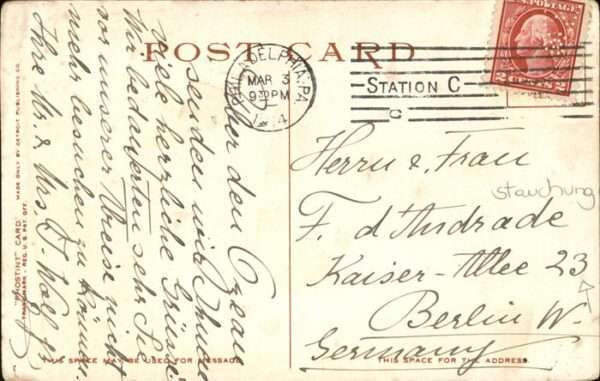 POST CARD
PHILADELPHIA, PA.
MAR 3
9 30 PM
STATION C
C
U.S. POSTAGE
2 CENTS 2
"PHOSTINT" CARD MADE ONLY BY DETROIT PUBLISHING CO.
TRADEMARK REG. U.S. PAT. OFF.
Über den Ozean
senden wir Ihnen
viele herzliche Grüsse.
Wir bedauerten sehr Sie
vor unserer Abreise nicht
mehr besuchen zu können.
Ihre Mr. & Mrs.
Herrn & Frau
stauchung
F. d'Andrade
Kaiser-Allee 23
Berlin W.
Germany
THIS SPACE MAY BE USED FOR MESSAGE.
THIS SPACE FOR THE ADDRESS.